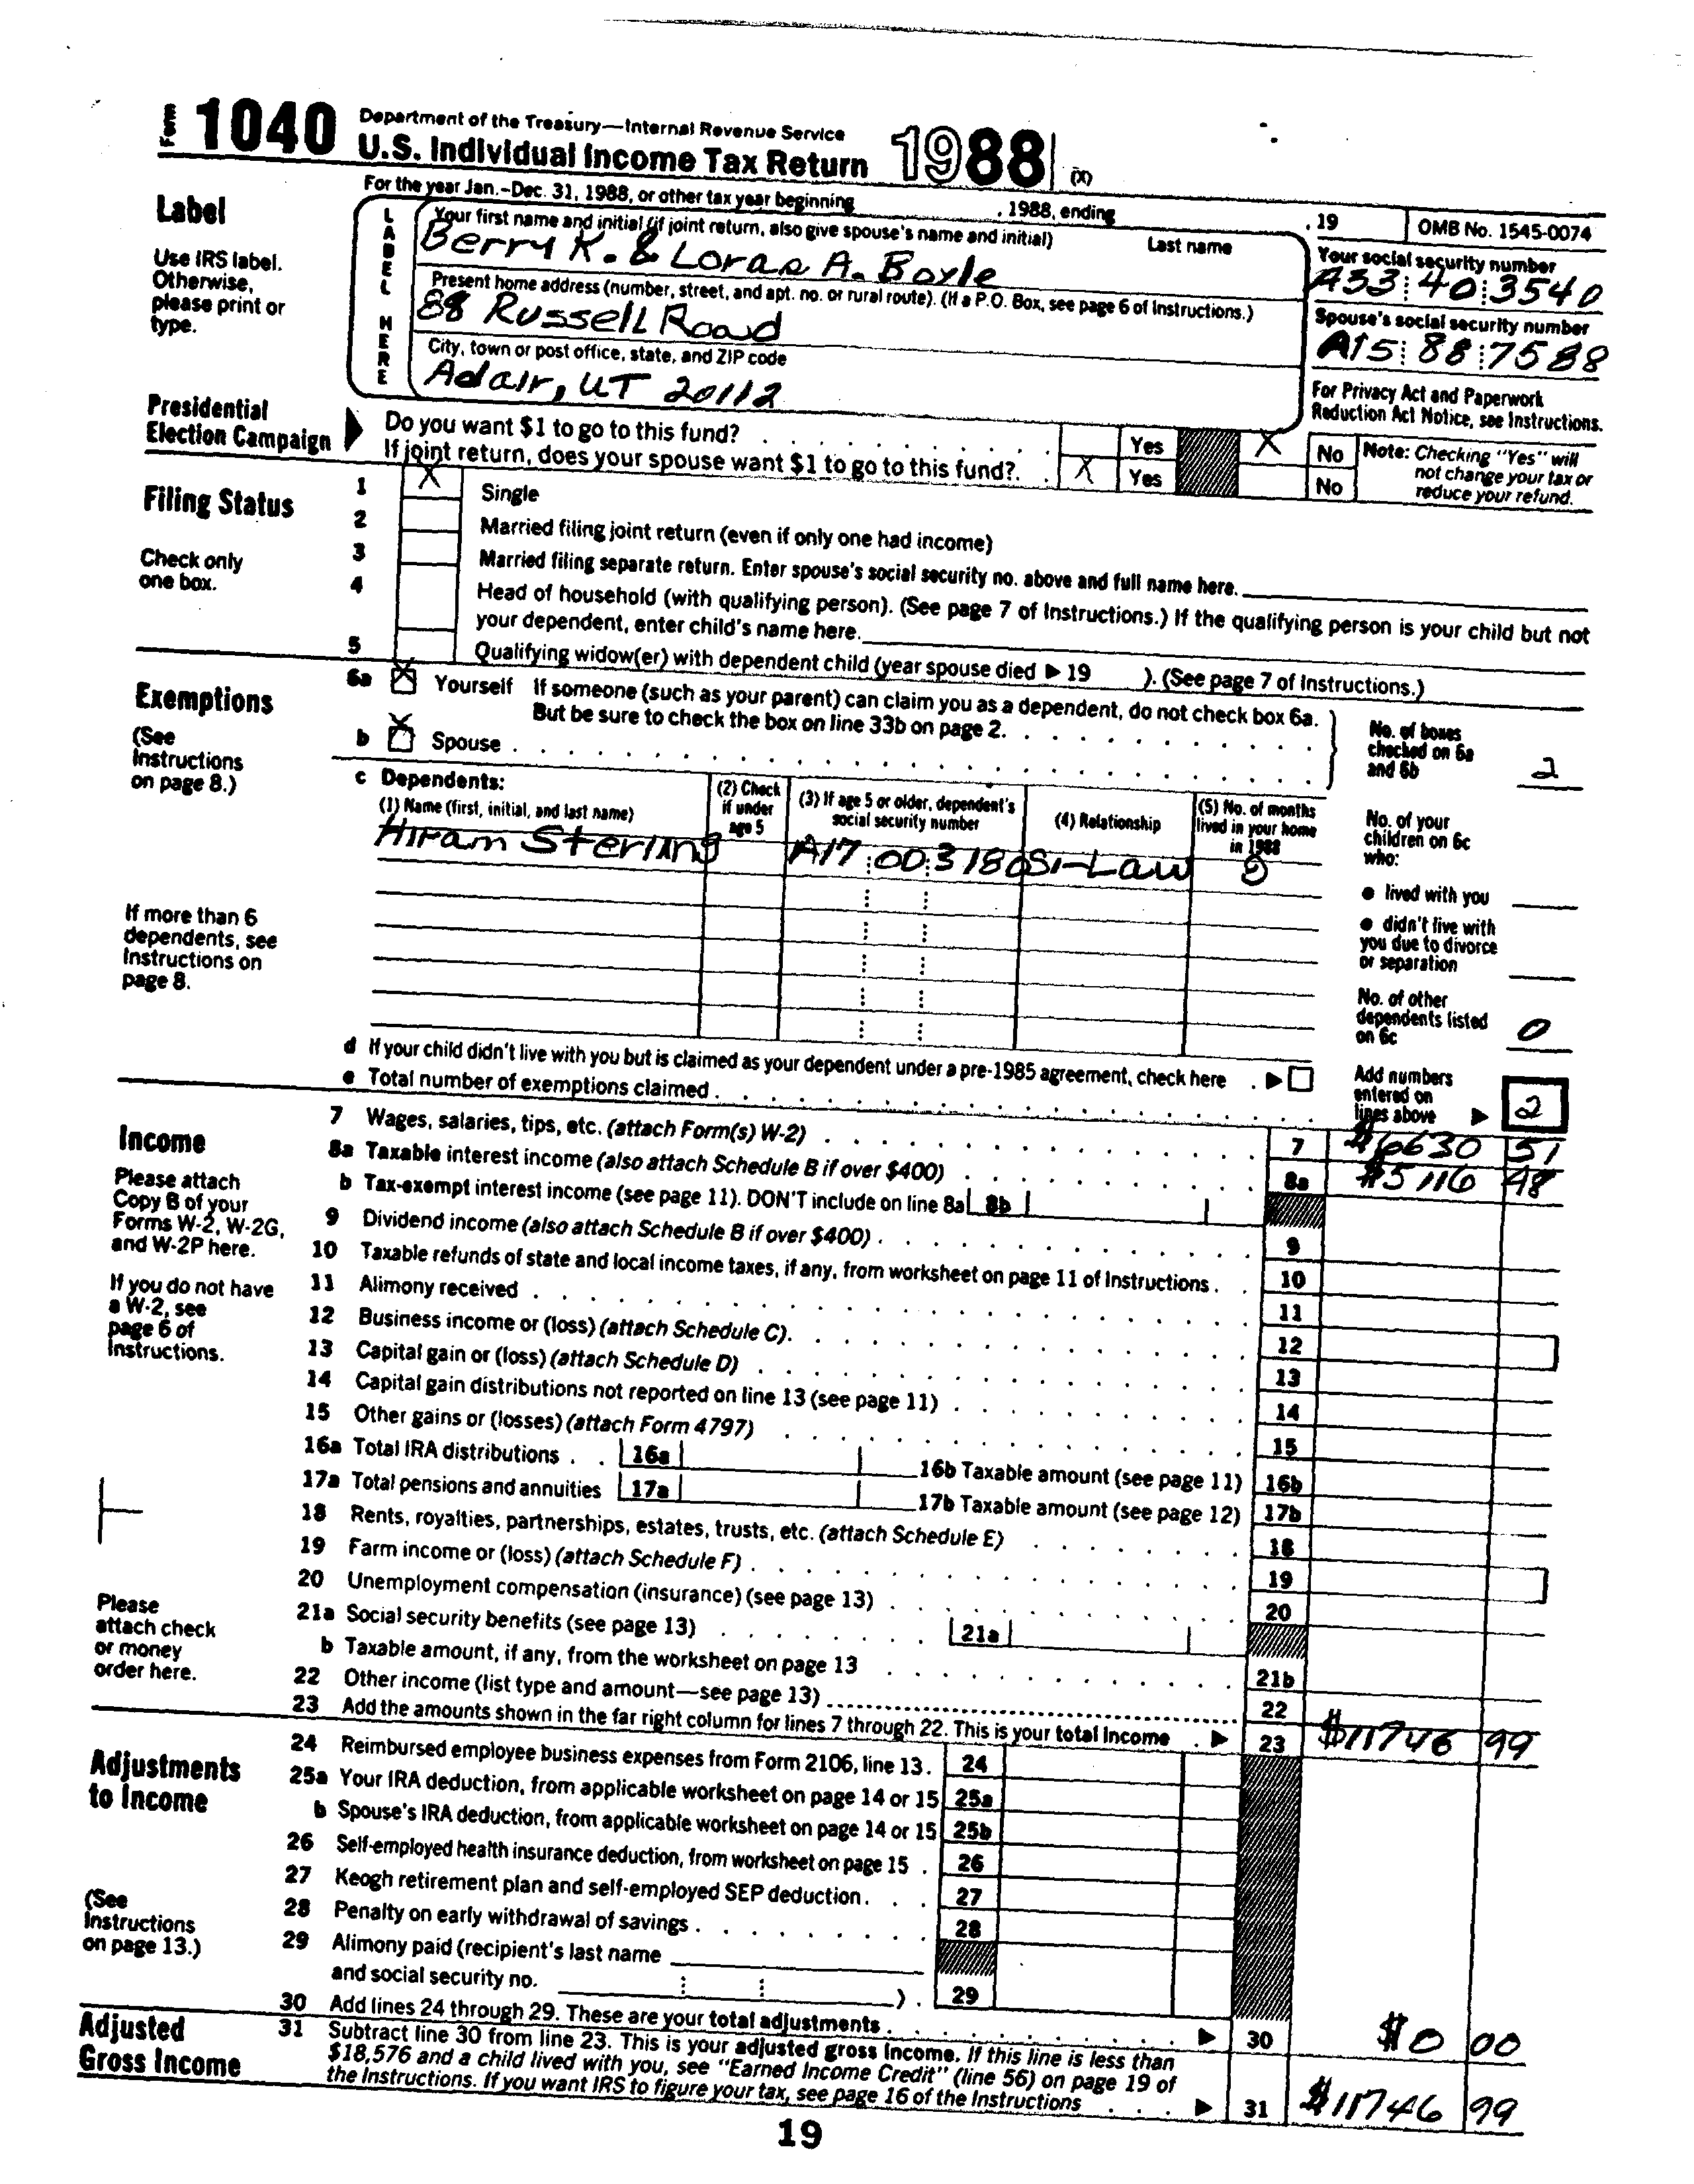 Form 1040 Department of the Treasury—Internal Revenue Service
U.S. Individual Income Tax Return 1988 (X)
For the year Jan.-Dec. 31, 1988, or other tax year beginning , 1988, ending , 19 OMB No. 1545-0074
Label
Use IRS label.
Otherwise,
please print or
type.
LABEL HERE
Your first name and initial (if joint return, also give spouse's name and initial) Last name
Berry K. & Loras A. Boyle
Your social security number
A33 40 3540
Present home address (number, street, and apt. no. or rural route). (If a P.O. Box, see page 6 of Instructions.)
88 Russell Road
Spouse's social security number
A15 88 7588
City, town or post office, state, and ZIP code
Adair, UT 20112
For Privacy Act and Paperwork
Reduction Act Notice, see Instructions.
Presidential
Election Campaign
Do you want $1 to go to this fund? Yes X No
If joint return, does your spouse want $1 to go to this fund? X Yes No
Note: Checking "Yes" will
not change your tax or
reduce your refund.
Filing Status
Check only
one box.
1 X Single
2 Married filing joint return (even if only one had income)
3 Married filing separate return. Enter spouse's social security no. above and full name here.
4 Head of household (with qualifying person). (See page 7 of Instructions.) If the qualifying person is your child but not
your dependent, enter child's name here.
5 Qualifying widow(er) with dependent child (year spouse died ▶ 19 ). (See page 7 of Instructions.)
Exemptions
(See
Instructions
on page 8.)
6a X Yourself If someone (such as your parent) can claim you as a dependent, do not check box 6a.
But be sure to check the box on line 33b on page 2.
b X Spouse
No. of boxes
checked on 6a
and 6b 2
c Dependents:
(1) Name (first, initial, and last name)
(2) Check
if under
age 5
(3) If age 5 or older, dependent's
social security number
(4) Relationship
(5) No. of months
lived in your home
in 1988
Hiram Sterling A17 00 3180 Si-Law 0
If more than 6
dependents, see
Instructions on
page 8.
No. of your
children on 6c
who:
● lived with you
● didn't live with
you due to divorce
or separation
No. of other
dependents listed
on 6c 0
d If your child didn't live with you but is claimed as your dependent under a pre-1985 agreement, check here ▶
e Total number of exemptions claimed
Add numbers
entered on
lines above ▶ 2
Income
Please attach
Copy B of your
Forms W-2, W-2G,
and W-2P here.
If you do not have
a W-2, see
page 6 of
Instructions.
Please
attach check
or money
order here.
7 Wages, salaries, tips, etc. (attach Form(s) W-2) 7 $6630 51
8a Taxable interest income (also attach Schedule B if over $400) 8a $5116 48
b Tax-exempt interest income (see page 11). DON'T include on line 8a 8b
9 Dividend income (also attach Schedule B if over $400) 9
10 Taxable refunds of state and local income taxes, if any, from worksheet on page 11 of Instructions 10
11 Alimony received 11
12 Business income or (loss) (attach Schedule C) 12
13 Capital gain or (loss) (attach Schedule D) 13
14 Capital gain distributions not reported on line 13 (see page 11) 14
15 Other gains or (losses) (attach Form 4797) 15
16a Total IRA distributions 16a 16b Taxable amount (see page 11) 16b
17a Total pensions and annuities 17a 17b Taxable amount (see page 12) 17b
18 Rents, royalties, partnerships, estates, trusts, etc. (attach Schedule E) 18
19 Farm income or (loss) (attach Schedule F) 19
20 Unemployment compensation (insurance) (see page 13) 20
21a Social security benefits (see page 13) 21a
b Taxable amount, if any, from the worksheet on page 13 21b
22 Other income (list type and amount—see page 13) 22
23 Add the amounts shown in the far right column for lines 7 through 22. This is your total income ▶ 23 $11746 99
Adjustments
to Income
(See
Instructions
on page 13.)
24 Reimbursed employee business expenses from Form 2106, line 13. 24
25a Your IRA deduction, from applicable worksheet on page 14 or 15 25a
b Spouse's IRA deduction, from applicable worksheet on page 14 or 15 25b
26 Self-employed health insurance deduction, from worksheet on page 15 26
27 Keogh retirement plan and self-employed SEP deduction 27
28 Penalty on early withdrawal of savings 28
29 Alimony paid (recipient's last name
and social security no. ) 29
30 Add lines 24 through 29. These are your total adjustments ▶ 30 $0 00
Adjusted
Gross Income
31 Subtract line 30 from line 23. This is your adjusted gross income. If this line is less than
$18,576 and a child lived with you, see "Earned Income Credit" (line 56) on page 19 of
the Instructions. If you want IRS to figure your tax, see page 16 of the Instructions ▶ 31 $11746 99
19